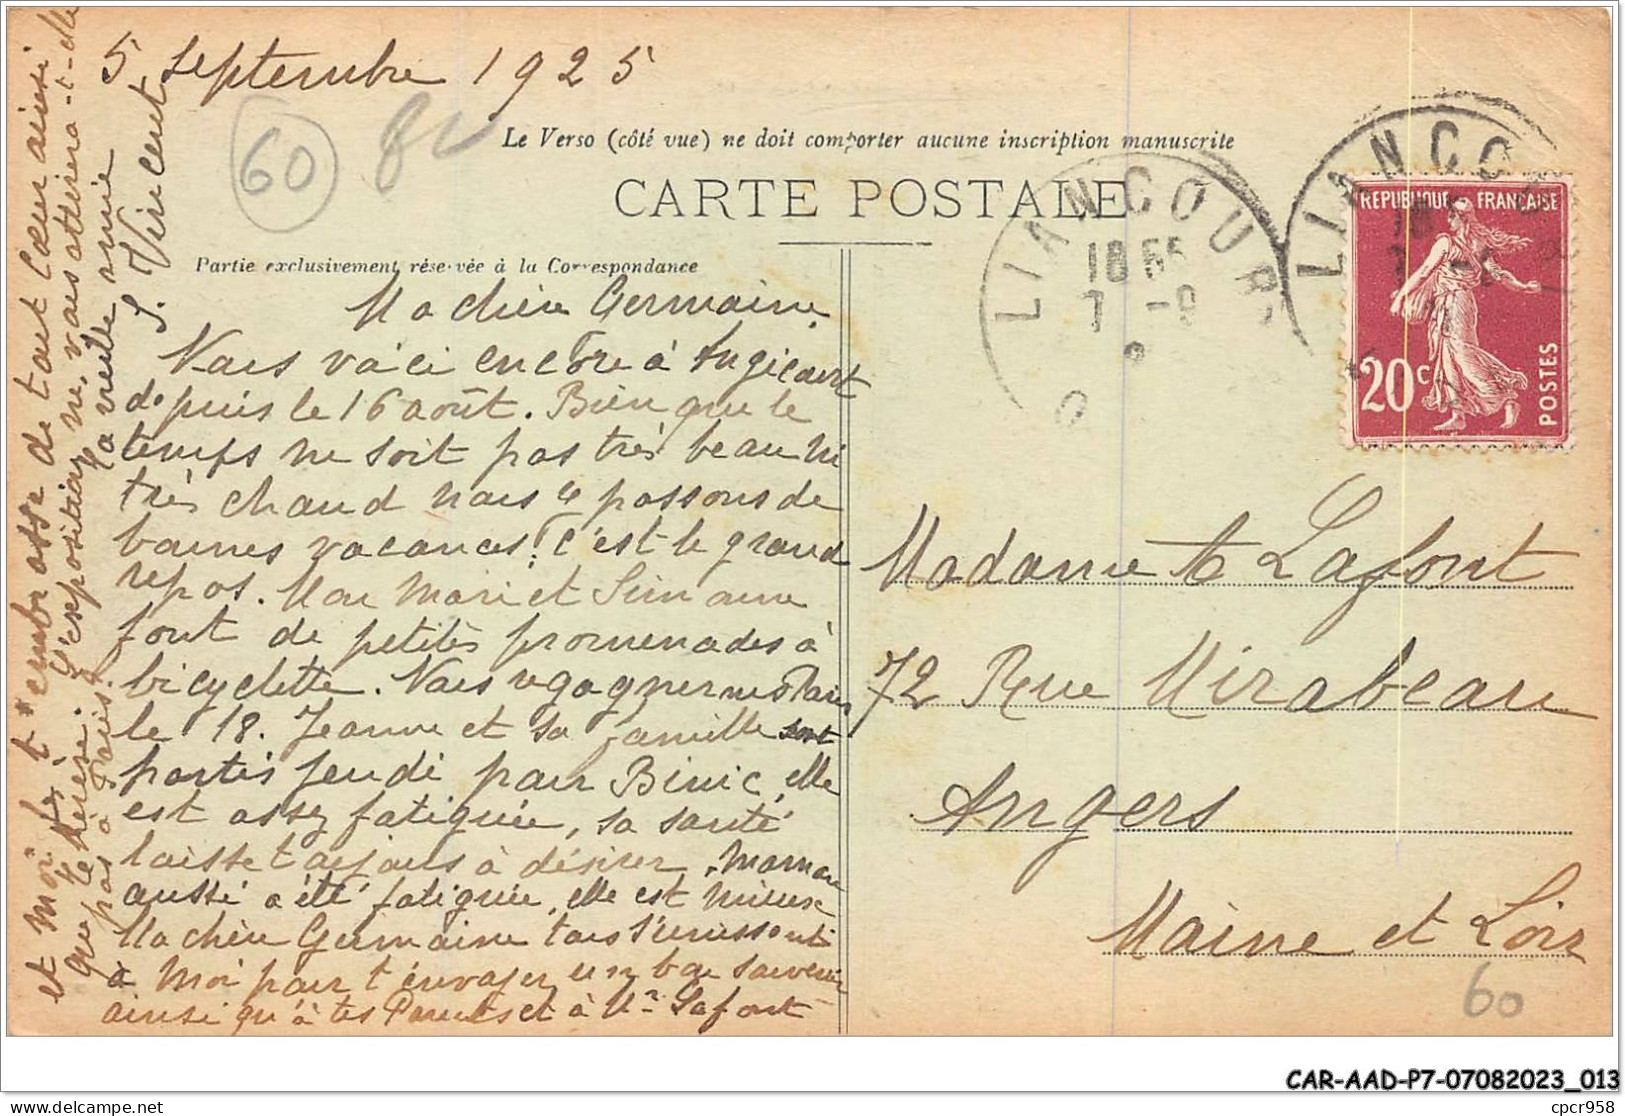 5 Septembre 1925
60
Le Verso (côté vue) ne doit comporter aucune inscription manuscrite
CARTE POSTALE
Partie exclusivement réservée à la Correspondance
LIANCOURT
18 55
7 -9
LIANCOURT
REPUBLIQUE FRANÇAISE
20c
POSTES
Ma chère Germaine,
Nous voici encore à Angicourt
depuis le 16 août. Bien que le
temps ne soit pas très beau ni
très chaud nous y passons de
bonnes vacances! c'est le grand
repos. Mon mari et Simonne
font de petites promenades à
bicyclette. Nous regagnerons Paris
le 18. Jeanne et sa famille sont
partis jeudi pour Binic, elle
est assez fatiguée, sa santé
laisse toujours à désirer. Maman
aussi a été fatiguée, elle est mieux
Ma chère Germaine tous s'unissent
à moi pour t'envoyer un bon souvenir
ainsi qu'à tes Parents et à Mr Lafont
et moi je t'embrasse de tout Cœur ainsi
que thérèse. L'exposition ne vous attirera-t-elle
pas à Paris?
Ta vieille amie
S. Vincent
Madame Lafont
72 Rue Mirabeau
Angers
Maine et Loire
60
CAR-AAD-P7-07082023_013
delcampe.net
cpcr958